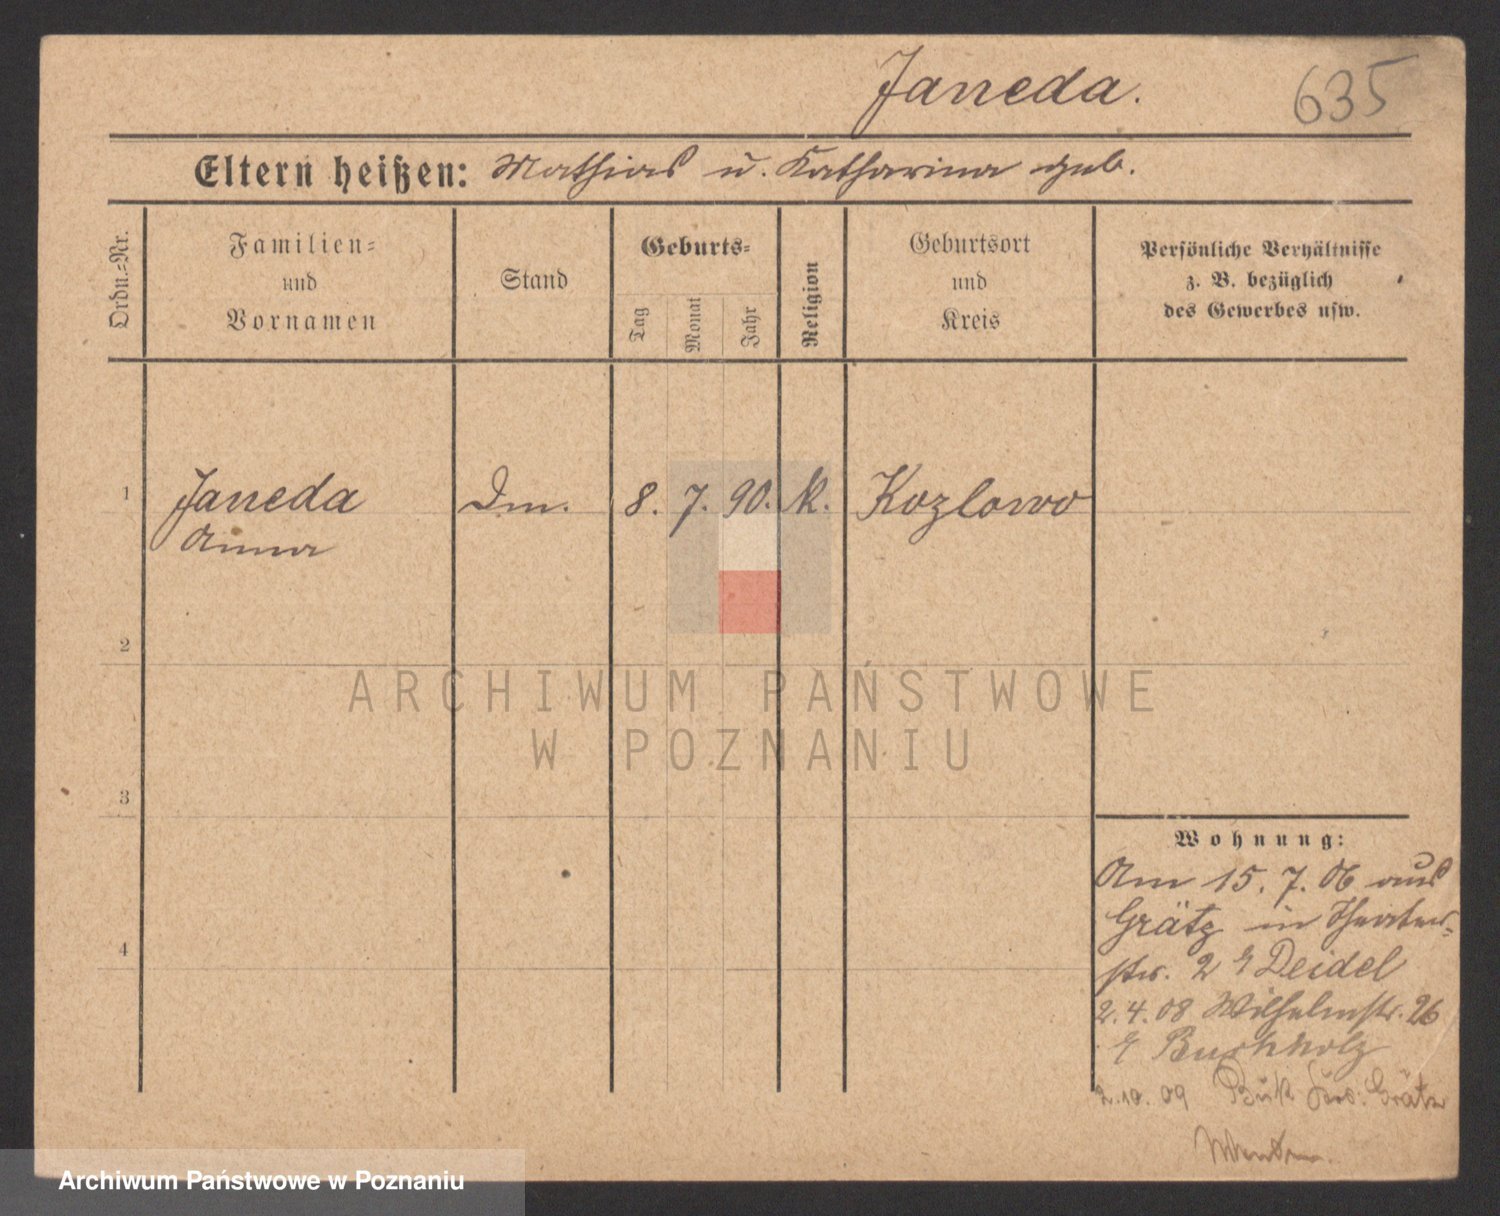 Janeda.
635
Eltern heißen: Mathias u. Katharina geb.
Ordn.-Nr.
Familien-
und
Vornamen
Stand
Geburts-
Tag
Monat
Jahr
Religion
Geburtsort
und
Kreis
Persönliche Verhältnisse
z. B. bezüglich
des Gewerbes usw.
1
Janeda
Anna
Dm.
8. 7. 90.
k.
Kozlowo
2
ARCHIWUM PAŃSTWOWE
W POZNANIU
3
4
Wohnung:
Am 15. 7. 06 aus
Grätz in Theater-
str. 2 Deidel
2. 4. 08 Wilhelmstr. 26
Buchholz
2. 10. 09 Buk Krs. Grätz
Archiwum Państwowe w Poznaniu